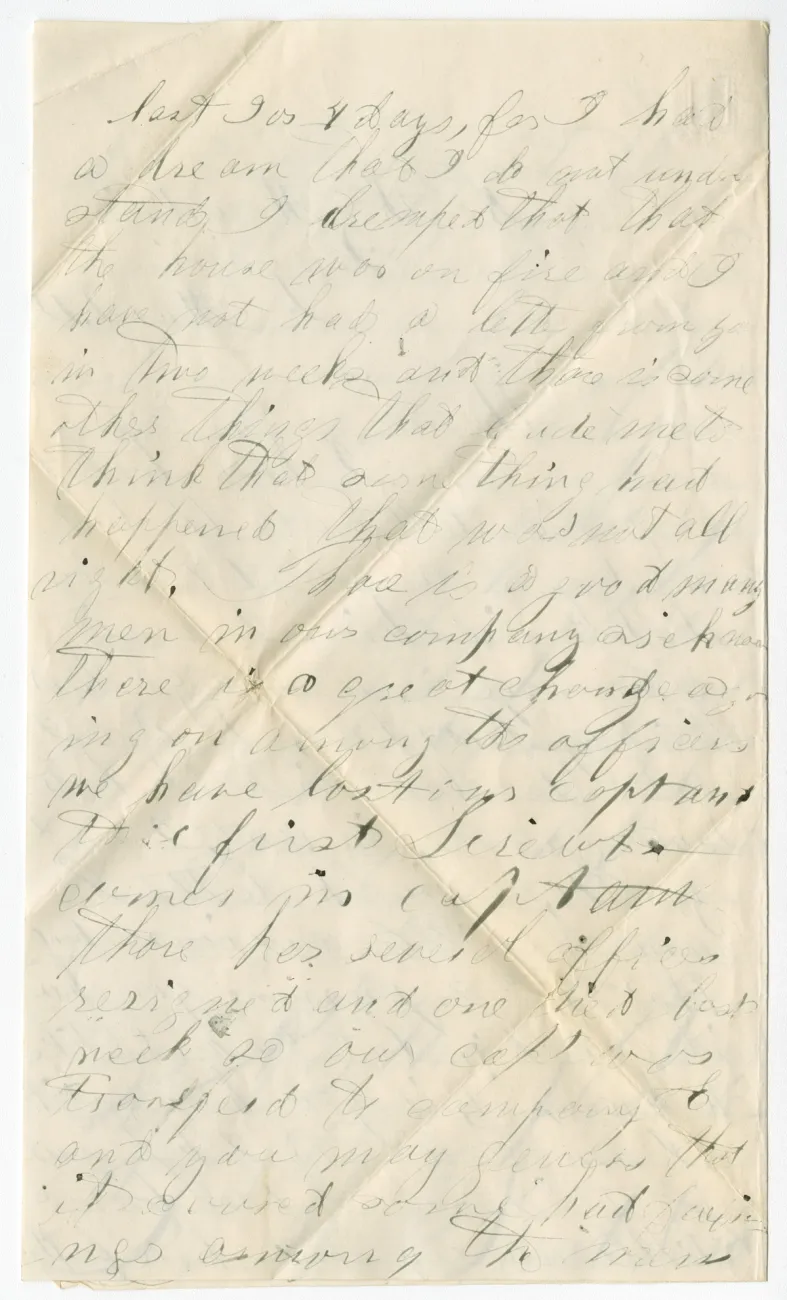 last 3 or 4 days, for I had
a dream that I do not under
stand, I dremped that that
the house was on fire and I
have not had a lette from yo
in two weeks and thare is some
other things that made me to
think that some thing had
happened that was not all
right. Thare is a good many
men in our company sick now
there is a great change a go
ing on among the officers
we have lost our captan
the first Lieut
comes in captain
thare has severl offices
resigned and one died last
neek so our capt was
Transferd to company
and you may geuess that
it caused some had feeli
ngs among the men